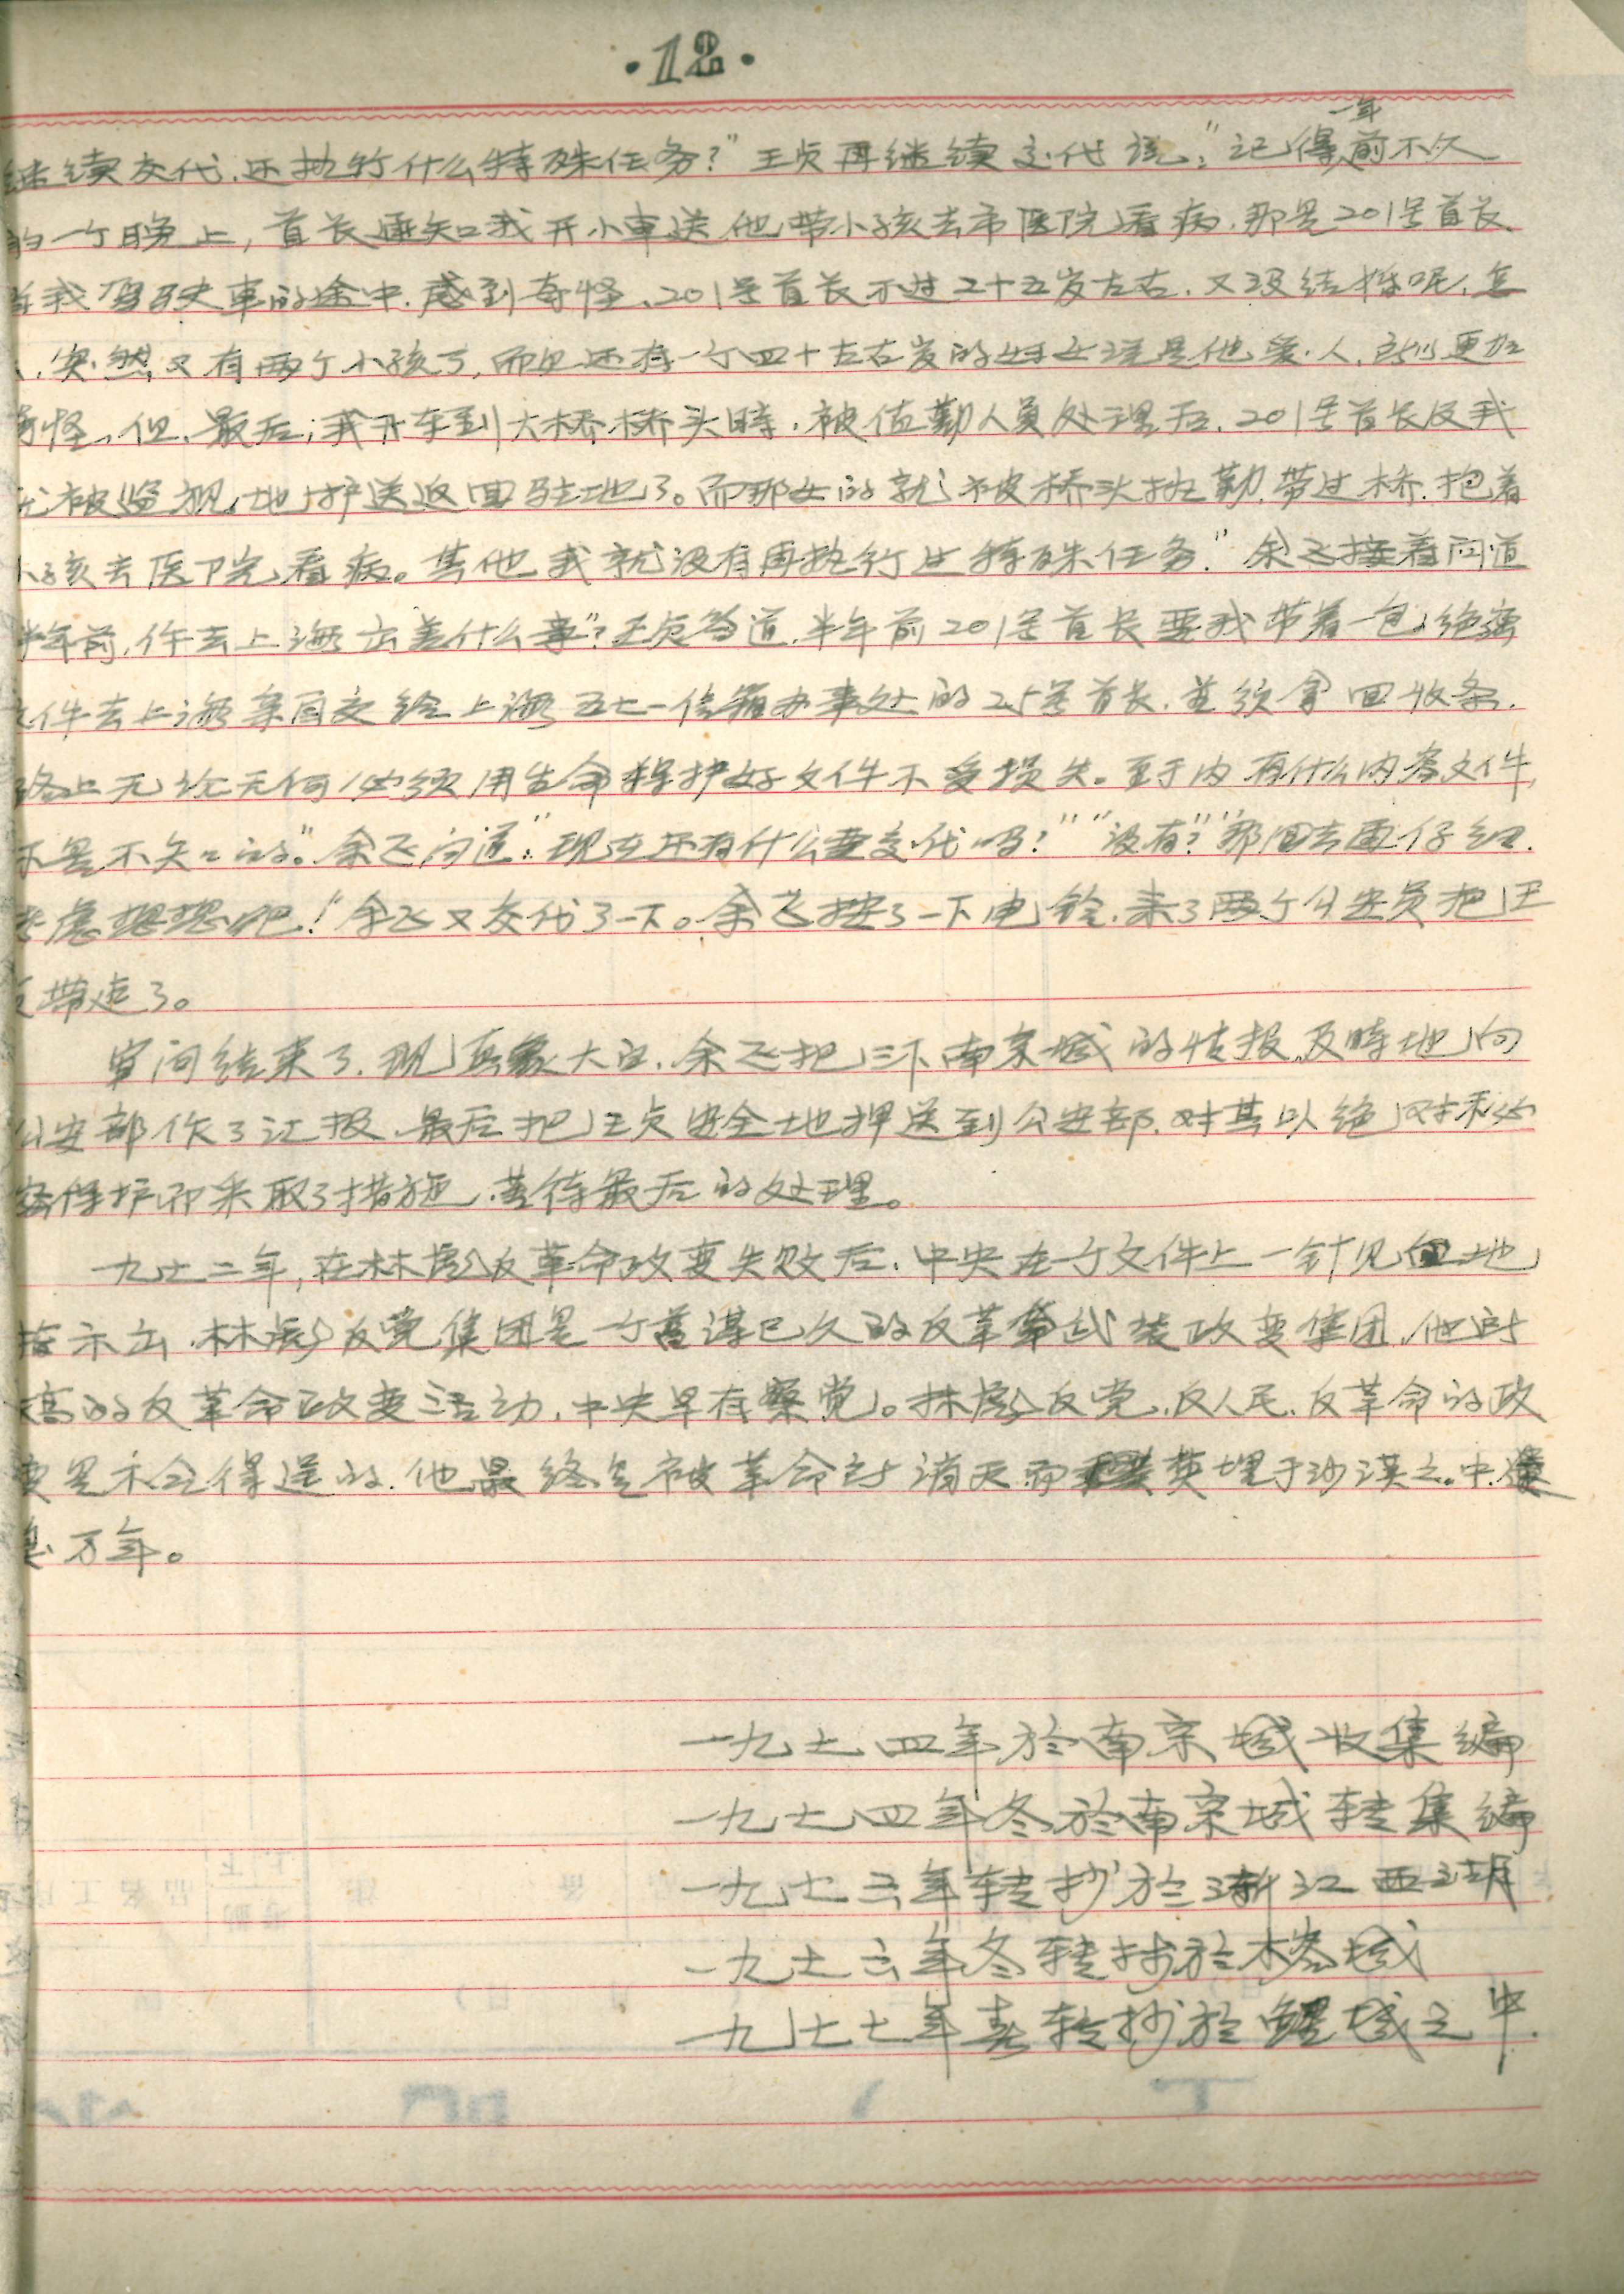 ·12·
一年
继续交代,还执行什么特殊任务?”王贞再继续交代说:“记得前不久
的一个晚上,首长通知我开小車送他带小孩去市医院看病.那是201号首长
我驾驶車的途中.感到奇怪、201号首长不过二十五岁左右.又没结婚呢、怎
突然又有两个小孩了,而且还有一个四十左右岁的妇女说是他爱人,所以更加
奇怪、但、最后,我开车到大桥桥头時、被值勤人員处理后、201号首长及我
被监视地护送返回驻地了。而那女的就被桥头执勤,带过桥.抱着
小孩去医院看病。其他我就没有再执行过特殊任务.”余飞接着问道
半年前,你去上海出差什么事”?王贞答道.半年前201号首长要我带着一包绝密
文件去上海亲自交给上海五七一信箱办事处的25号首长.并须拿回收条.
路上无论无何必须用生命保护好文件不受损失。至于内有什么内容文件,
不是不知的。”余飞问道:“现在还有什么要交代吗?”“没有?”“那回去再仔细.
考虑想想吧!”余飞又交代了一下。余飞按了一下电铃.来了两个公安员把王
贞带走了。
审问结束了.现真象大白.余飞把三下南京城的情报及時地向
公安部作了汇报.最后把王贞安全地押送到公安部.对其以绝对秘
密保护而采取了措施.等待最后的处理。
九七二年,在林彪反革命政变失败后.中央在一个文件上一针见血地
指示出.林彪反党集团是一个蓄谋已久的反革命武装政变集团.他所
搞的反革命政变活动.中央早有察觉。林彪反党.反人民.反革命的政
变是不会得逞的.他最终是被革命所消灭而葬埋于沙漠之中.遗
臭万年。
一九七四年於南京城收集编
一九七四年冬於南京城转集编
一九七六年转抄於浙江西湖
一九七六年冬转抄於榕城
一九七七年春转抄於鲤城之中.